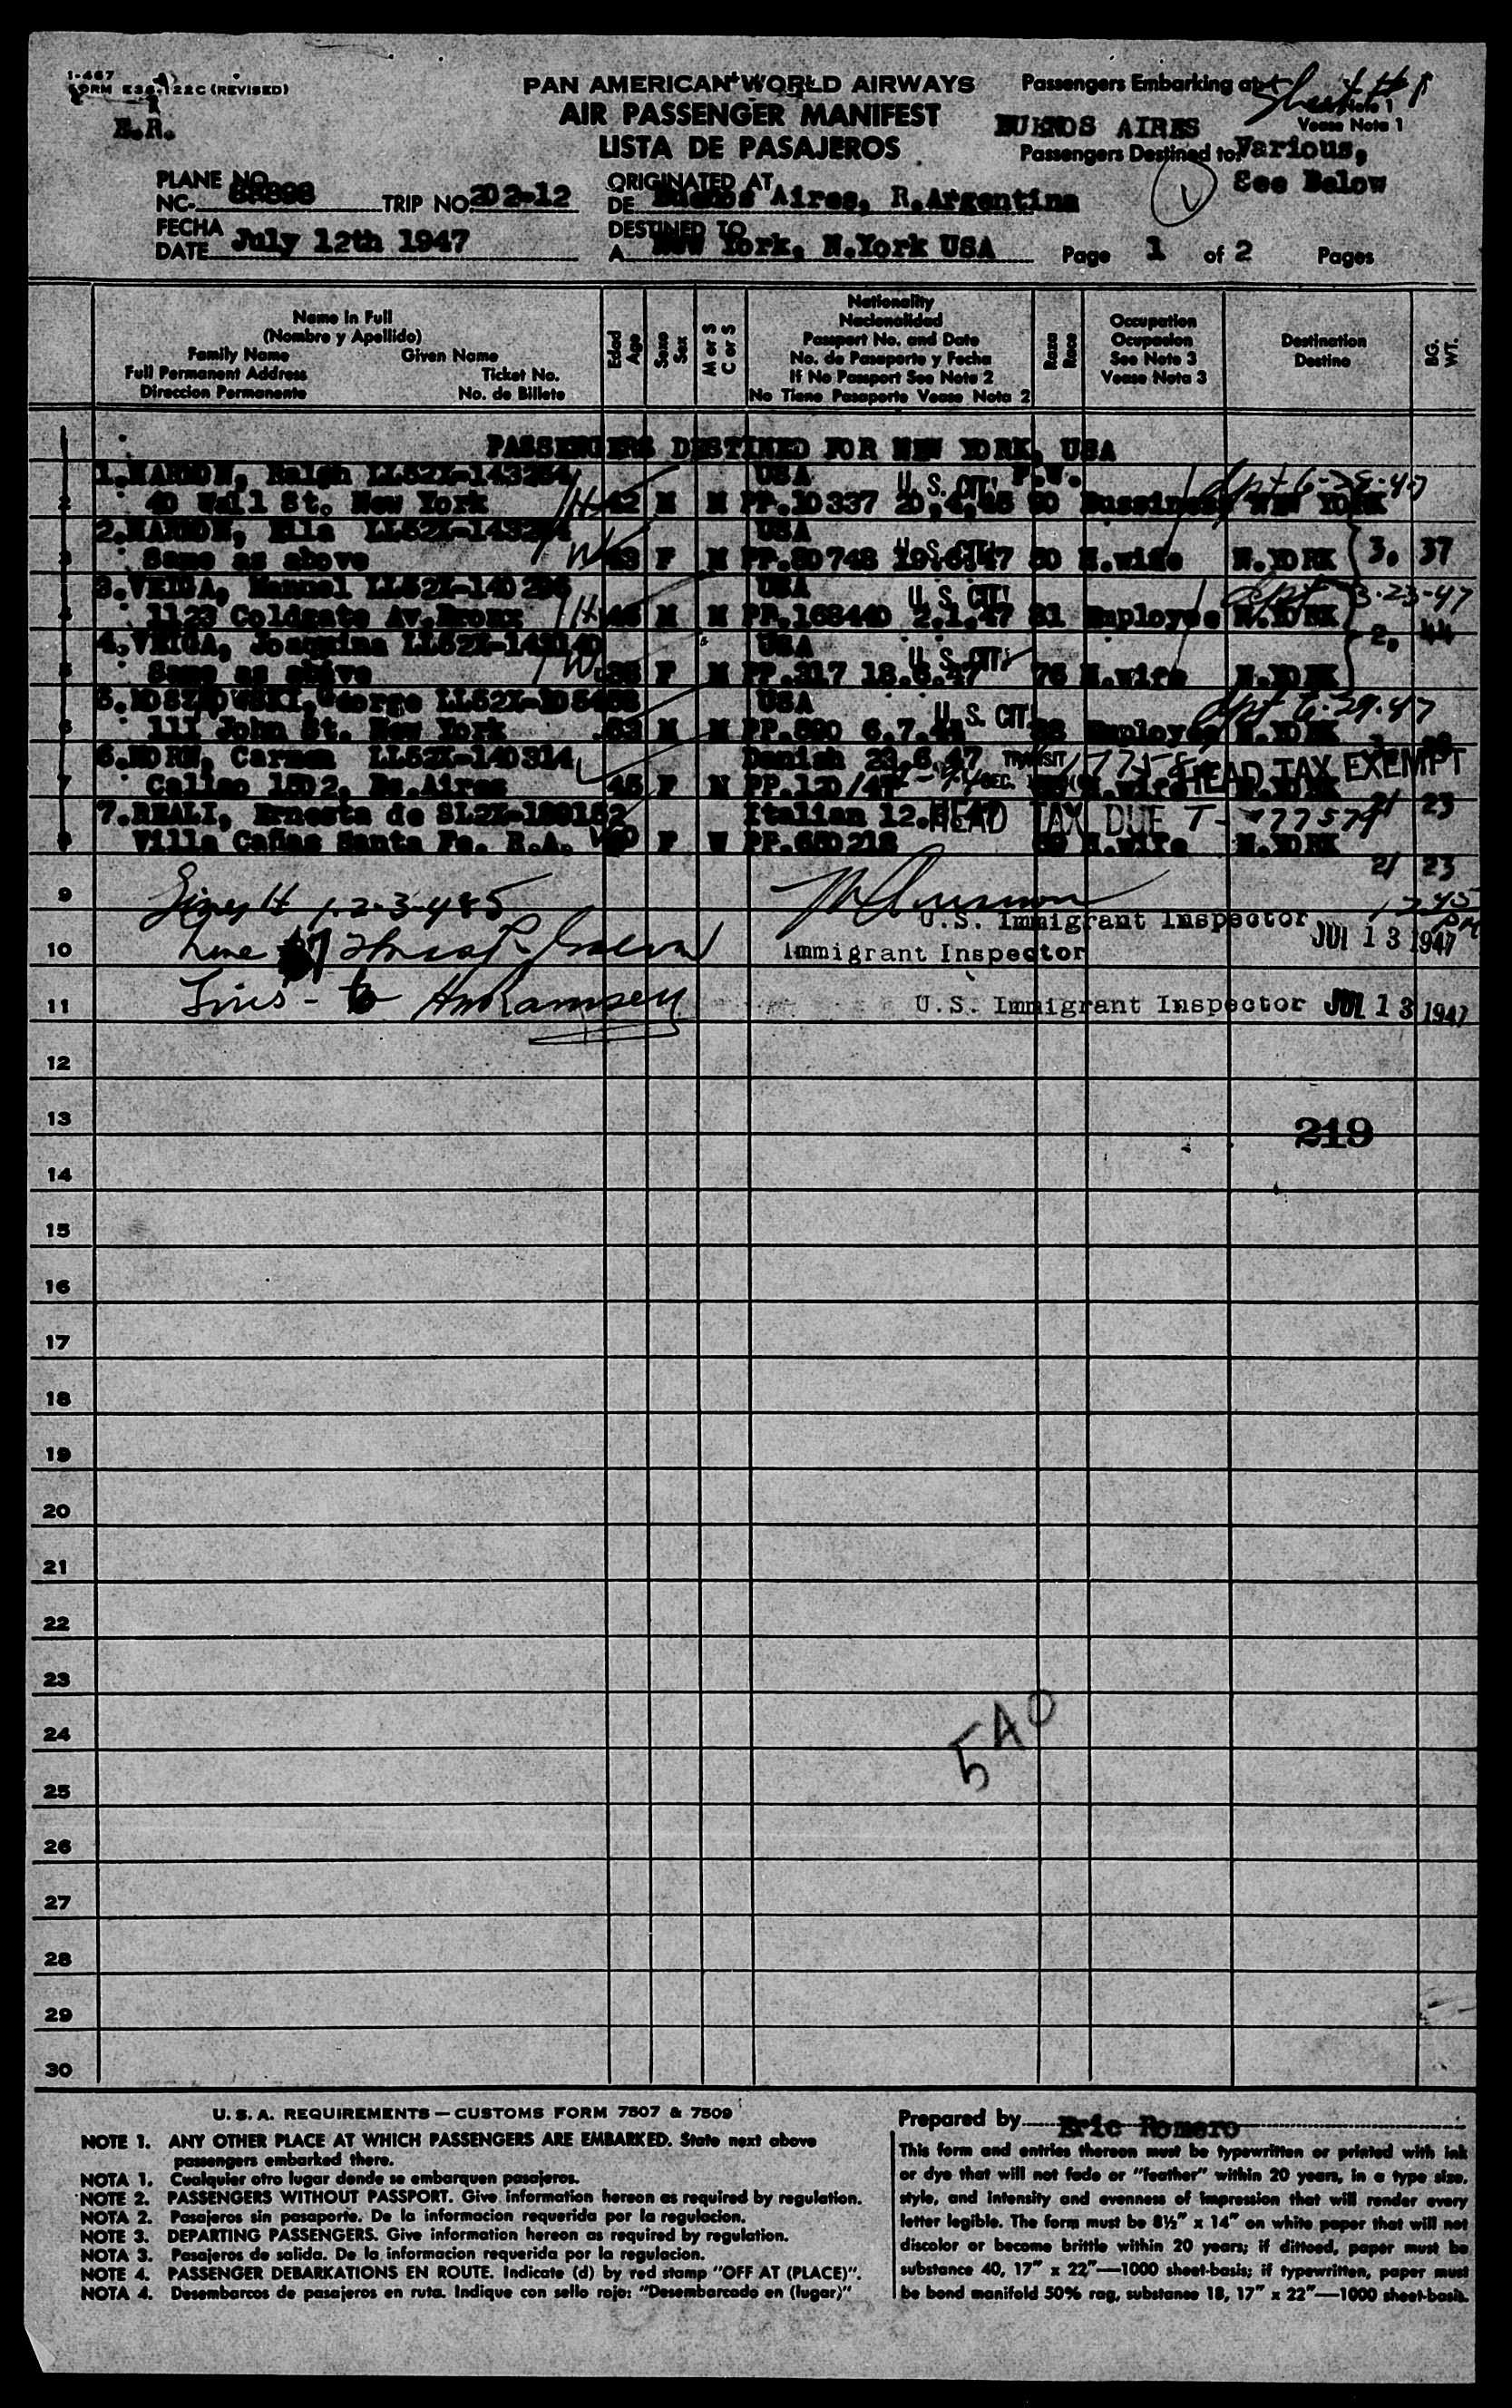 1-467
FORM (REVISED)
E.R.
PAN AMERICAN WORLD AIRWAYS
AIR PASSENGER MANIFEST
LISTA DE PASAJEROS
Passengers Embarking at
Sheet #1
Note 1
Vease Note 1
BUENOS AIRES
Passengers Destined to: Various,
See Below
PLANE NO.
NC- TRIP NO. 202-12
FECHA
DATE July 12th 1947
ORIGINATED AT
DE Buenos Aires, R.Argentina
DESTINED TO
A New York, N.York USA
Page 1 of 2 Pages
Name in Full
(Nombre y Apellido)
Family Name Given Name
Full Permanent Address Ticket No.
Direccion Permanente No. de Billete
Edad
Age
Sexo
Sex
M or S
C or S
Nationality
Nacionalidad
Passport No. and Date
No. de Pasaporte y Fecha
If No Passport See Note 2
No Tiene Pasaporte Vease Nota 2
Raza
Race
Occupation
Ocupacion
See Note 3
Vease Nota 3
Destination
Destino
BG.
WT.
PASSENGERS DESTINED FOR NEW YORK, USA
1. Ralph USA
2 40 Wall St. New York 42 M M PP.10337 U.S. CIT. NEW YORK
2. Ella USA
3 Same as above F M PP. U.S. CIT. H.wife N.YORK 3. 37
3.VEIGA, Manuel USA 3-23-47
4 1123 Av.Bronx M M PP.168440 2,1,47 U.S. CIT. Employee N.YORK 2. 44
4.VEIGA, Joaquina USA
5 Same as above F M PP.317 U.S. CIT. 76 H.wife N.YORK
5. George USA 6-29-47
6 111 John St. New York M M PP. U.S. CIT. Employee N.YORK
6. Carmen LL52X-140314 Danish 23.6.47 TRANSIT
7 Callao 1502, Bs.Aires F M HEAD TAX EXEMPT 21 23
7.REALI, Ernesta de Italian HEAD TAX DUE
8 Villa Cañas Santa Fe. R.A. F PP.650218 H.wife N.YORK 21 23
9 1-2-3-4-5
U.S. Immigrant Inspector
10 Line Immigrant Inspector JUL 13 1947
11 U.S. Immigrant Inspector JUL 13 1947
12
13
219
14
15
16
17
18
19
20
21
22
23
24
540
25
26
27
28
29
30
U. S. A. REQUIREMENTS — CUSTOMS FORM 7507 & 7509
NOTE 1. ANY OTHER PLACE AT WHICH PASSENGERS ARE EMBARKED. State next above
passengers embarked there.
NOTA 1. Cualquier otro lugar donde se embarquen pasajeros.
NOTE 2. PASSENGERS WITHOUT PASSPORT. Give information hereon as required by regulation.
NOTA 2. Pasajeros sin pasaporte. De la informacion requerida por la regulacion.
NOTE 3. DEPARTING PASSENGERS. Give information hereon as required by regulation.
NOTA 3. Pasajeros de salida. De la informacion requerida por la regulacion.
NOTE 4. PASSENGER DEBARKATIONS EN ROUTE. Indicate (d) by red stamp "OFF AT (PLACE)".
NOTA 4. Desembarcos de pasajeros en ruta. Indique con sello rojo: "Desembarcado en (lugar)"
Prepared by Eric Romero
This form and entries thereon must be typewritten or printed with ink
or dye that will not fade or "feather" within 20 years, in a type size,
style, and intensity and evenness of impression that will render every
letter legible. The form must be 8½" x 14" on white paper that will not
discolor or become brittle within 20 years; if dittoed, paper must be
substance 40, 17" x 22"—1000 sheet-basis; if typewritten, paper must
be bond manifold 50% rag, substance 18, 17" x 22"—1000 sheet-basis.